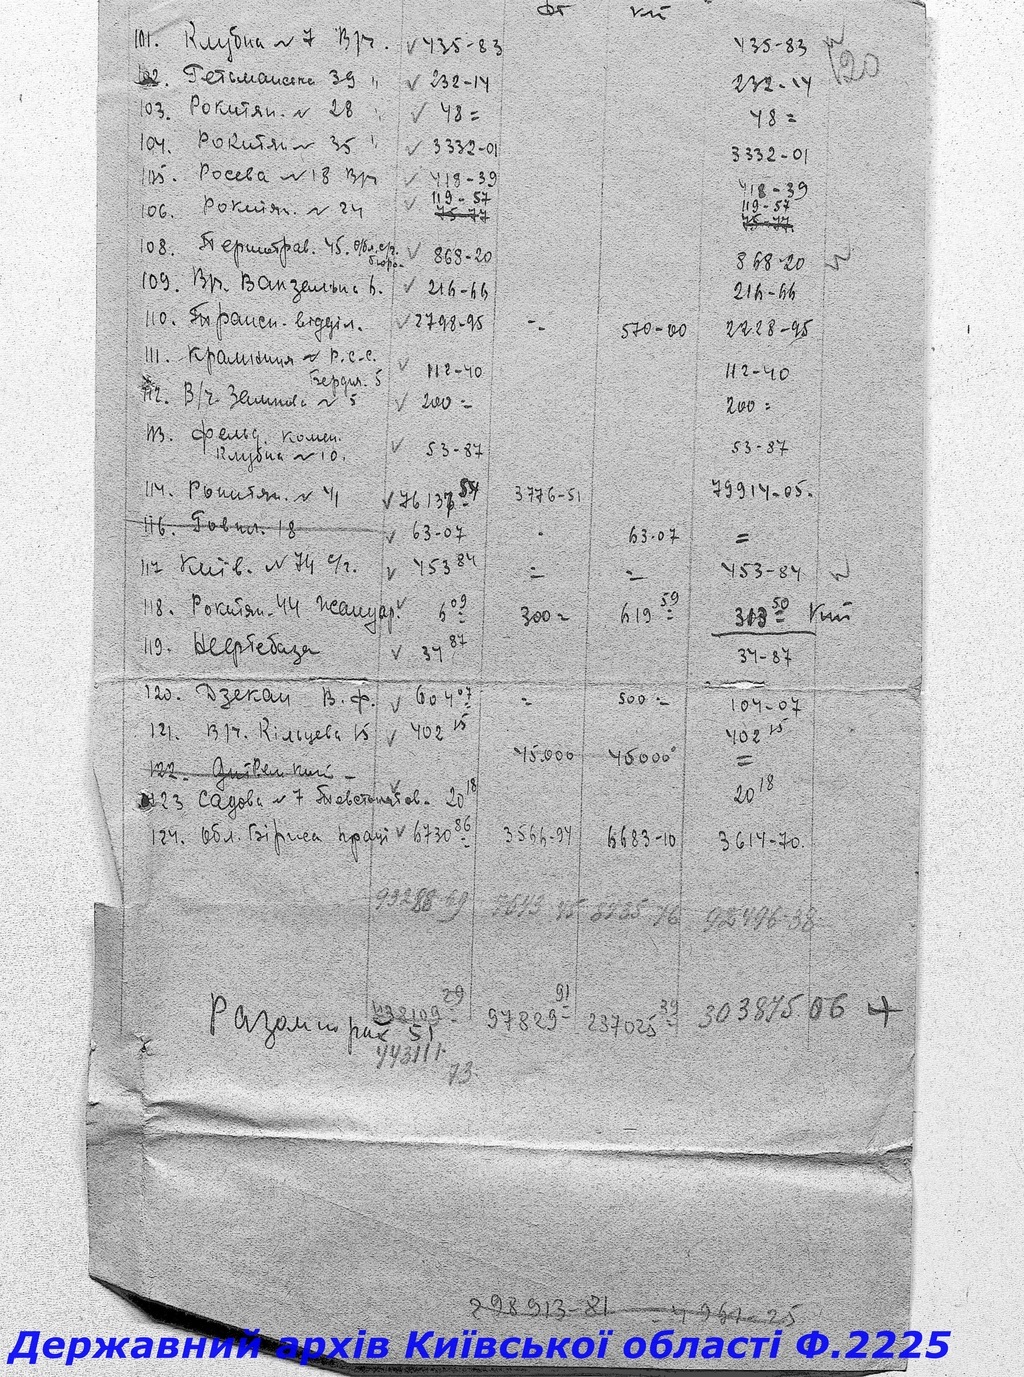 Дт Кт
101. Клубна № 7 Вуч. 435-83 435-83
102. Гетьманська 39 " 232-14 232-14 120
103. Рокитян. № 28 " 48 = 48 =
104. Рокитян № 35 " 3332-01 3332-01
105. Росева № 18 Вуч 418-39 418-39
106. Рокитян. № 24 119-57 119-57
75-77 75-77
108. Першотрав. 45. 868-20 868-20
бюро
109. Вуч. Вакзальна 6. 216-66 216-66
110. Трансп. відділ. 2798-95 =. 570-00 2228-95
111. Крамниця № Р.С.С. 112-40 112-40
Бердич. 5
112. В/ч. № 5 200 = 200 =
113. Фельд. комен. 53-87 53-87
Клубна № 10.
114. Рокитян. № 41 76137 54 3776-51 79914-05.
116. 18 63-07 - 63-07 =
117 Київ. № 74 с/г. 453 84 = = 453-84
118. Рокитян. 44 Жандар. 6 09 300 = 619 59 313 50 Кит
119. Нефтебаза 34 87 34-87
120. Дзекан В.ф. 604 07 = 500 = 104-07
121. Вуч. Кільцева 15 402 15 402 15
122. 45.000 45000 =
123 Садова № 7 20 18 20 18
124. Обл. Біржа праці 6730 86 3566-94 6683-10 3614-70.
93288-69 7643 45 8435 76 92496-38
Разом 438109 29 97829 91 237025 39 303875 06 +
51
443111.
73.
298913-81 - 4961-25
Державний архів Київської області Ф.2225